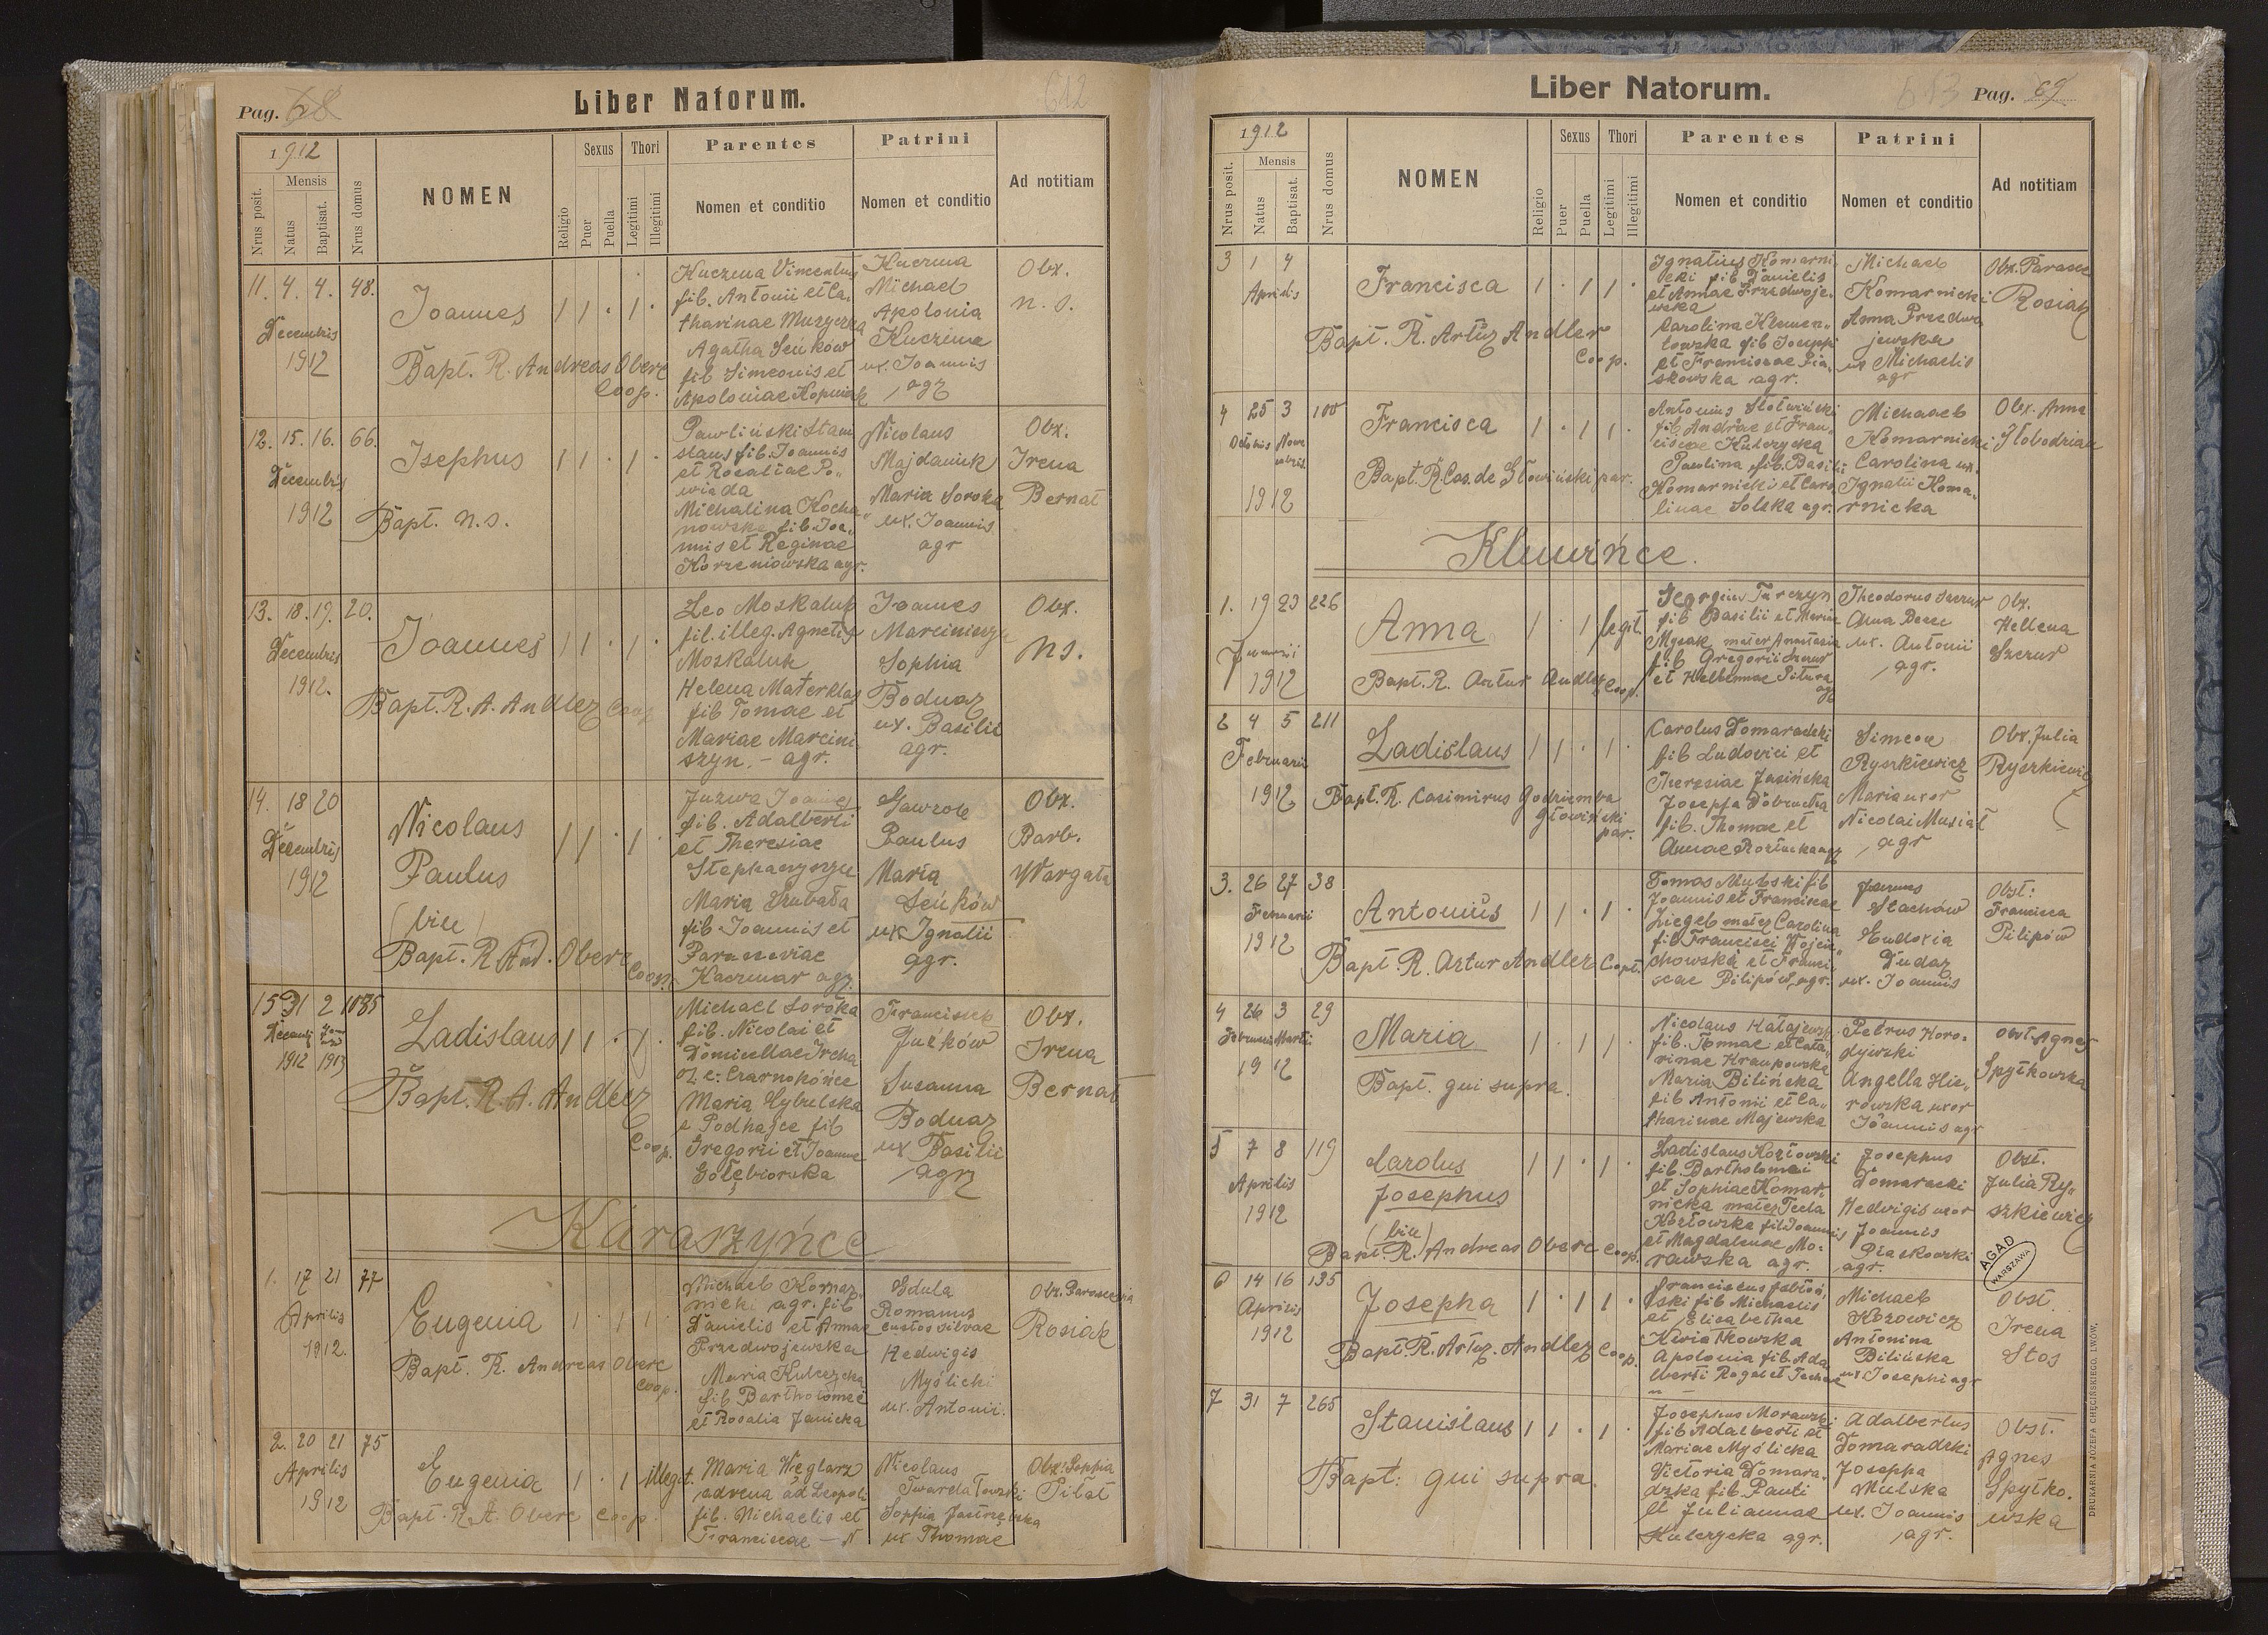 Pag. 68
Liber Natorum.
612
1912
Nrus posit.
Mensis
Natus
Baptisat.
Nrus domus
NOMEN
Religio
Sexus
Puer
Puella
Thori
Legitimi
Illegitimi
Parentes
Nomen et conditio
Patrini
Nomen et conditio
Ad notitiam
11. 4. 4. 48.
Decembris
1912
Joannes
Bapt. R. Andreas Oberc
Coop.
Kuczma Vincentius
fil. Antonii et Ca-
tharinae Muzyczka
Agatha Seńków
fil. Simeonis et
Apoloniae Kopiniak
Kuczma
Michael
Apolonia
Kuczma
ux. Joannis
agr
Obx.
n. s.
12. 15. 16. 66.
Decembris
1912
Josephus
Bapt. n.s.
Pawliński Stani
slaus fil. Joannis
et Rosaliae Po-
wiada
Michalina Kocha-
nowska fil. Joa-
nnis et Reginae
Korzeniowska agr.
Nicolaus
Majdaniuk
Maria Soroka
ux. Joannis
agr
Obx.
Irena
Bernat
13. 18. 19. 20.
Decembris
1912.
Joannes
Bapt. R. A. Andler Coop
Leo Moskaluk
fil. illeg. Agnetis
Moskaluk
Helena Materklas
fil Tomae et
Mariae Marcini
szyn. - agr.
Joannes
Marciniszyn
Sophia
Bodnar
ux. Basilii
agr.
Obx.
ns.
14. 18 20
Decembris
1912
Nicolaus
Paulus
(bin)
Bapt. R. And. Oberc
Coop.
Juzwa Joannes
fil. Adalberti
et Theresiae
Stephaniszyn
Maria
fil. Joannis et
Parasceviae
Kaczmar agr.
Gawrok
Paulus
Maria
Seńków
ux Ignatii
agr.
Obx.
Barb.
Wargata
15 31 2 1085
1912 1913
Ladislaus
Bapt. R. A. Andler
Coop.
Michael Soroka
fil. Nicolai et
Domicellae Ircha
Czarnokońce
Maria Hybulska
e Podhajce fil
Gregorii et Joannae
Gołębiowska
Franciscus
Jurków
Susanna
Bodnar
ux Basilii
agr
Obx.
Irena
Bernat
Karaszyńce
1. 17 21 77
Aprilis
1912.
Eugenia
Bapt. R. Andreas Oberc
Coop.
Michael Komar-
nicki agr. fil
Danielis et Annae
Przedwojewska
Maria Kulczycka
fil Bartholomei
et Rosalia Janicka
Gdula
Romanus
custos silvae
Hedwigis
Myślicki
ux. Antonii.
Obx. Parascevia
Rosiak
2. 20 21 75
Aprilis
1912
Eugenia
illegit.
Bapt. R. A. Oberc Coop.
Maria Węglarz
advena ad Leopoli
fil. Michaelis et
Franciscae - N
Nicolaus
Sophia Jastrzębska
ux Thomae
Obx: Sophia
Pilat
Liber Natorum.
613
Pag. 69
1912
Nrus posit.
Mensis
Natus
Baptisat.
Nrus domus
NOMEN
Religio
Sexus
Puer
Puella
Thori
Legitimi
Illegitimi
Parentes
Nomen et conditio
Patrini
Nomen et conditio
Ad notitiam
3 1 4
Aprilis
Francisca
Bapt. R. Artur Andler
Coop.
Ignatius Komarni
cki fil Danielis
et Annae Przedwoje-
wska
Carolina Klemen-
towska fil Josephi
et Franciscae Pia-
skowska agr.
Michael
Komarnicki
Anna Przedwo
jewska
ux Michaelis
agr
Obx. Parasce
Rosiak
4 25 3 100
Octobris Nove
mbris
1912
Francisca
Bapt. R. Cas. de Głowiński par.
Antonius Słotwiński
fil Andrae et Fran-
ciscae Kulczycka
Paulina fil. Basilii
Komarnicki et Caro
linae Solska agr.
Michael
Komarnicki
Carolina ux.
Ignatii Koma-
rnicka
Obx. Anna
Słobodzian
Kluwińce.
1. 19 23 226
Januarii
1912
Anna
legit.
Bapt. R. Artur Andler Coop.
Georgius Turczyn
fil Basilii et Mariae
Mysak mater Anastasia
fil Gregorii Szczur
et Hellennae Pitura
agr
Theodorus Szczur
Anna
ux. Antonii
agr.
Obx.
Hellena
Szczur
2 4 5 211
Februarii
1912
Ladislaus
Bapt. R. Casimirus Godziemba
Głowiński
par.
Carolus Domaradzki
fil Ludovici et
Theresiae Jasińska
Josepha Dobrucka
fil. Thomae et
Annae
Simeon
Ryszkiewicz
Maria uxor
Nicolai Musiał
agr
Obx. Julia
Ryszkiewicz
3. 26 27 38
Februarii
1912
Antonius
Bapt. R. Artur Andler Coop.
Tomas Mulski fil
Joannis et Franciscae
Ziegel mater Carolina
fil Francisci Wojcie-
chowska et Franci-
scae Pilipów agr.
Stachów
Eudoxia
Dudar
ux. Joannis
Obst:
Francisca
Pilipów
4 26 3 29
Februarii Martii
1912
Maria
Bapt. qui supra.
Nicolaus
fil. Tomae et Cata-
rinae Kraupowska
Maria Bilińska
fil Antonii et Ca-
tharinae Majewska
Petrus Horo-
dyiwski
Angella Hie-
rowska uxor
Joannis agr
obst. Agnes
Spytkowska
5 7 8 119
Aprilis
1912
Carolus
Josephus
(bin)
Bapt. R. Andreas Oberc Coop.
Ladislaus Kozłowski
fil. Bartholomei
et Sophiae Komar-
nicka mater Tecla
Kozłowska fil Joannis
et Magdalenae Mo-
rawska agr.
Josephus
Domaracki
Hedvigis uxor
Joannis
Piaskowski
agr.
Obst.
Julia Ry-
szkiewicz
AGAD
WARSZAWA
6 14 16 135
Aprilis
1912
Josepha
Bapt. R. Artur. Andler Coop.
Franciscus Jabłoń-
ski fil Michaelis
et Elisabethae
Kwiatkowska
Apolonia fil. Ada
lberti Rogal et Teclae
Michael
Kozowicz
Antonina
Bilińska
ux Josephi agr
Obst.
Irena
Stos
7 31 7 265
Stanislaus
Bapt: qui supra.
Josephus Morawski
fil Adalberti et
Mariae Myślicka
Victoria Domara-
dzka fil. Pauli
et Juliannae
Kulczycka agr.
Adalbertus
Domaradzki
Josepha
Mulska
ux. Joannis
agr.
Obst.
Agnes
Spytko-
wska
DRUKARNIA JÓZEFA CHĘCIŃSKIEGO, LWÓW.